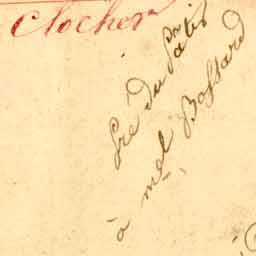 Clocher
Pré du Patis
à mel Bossard